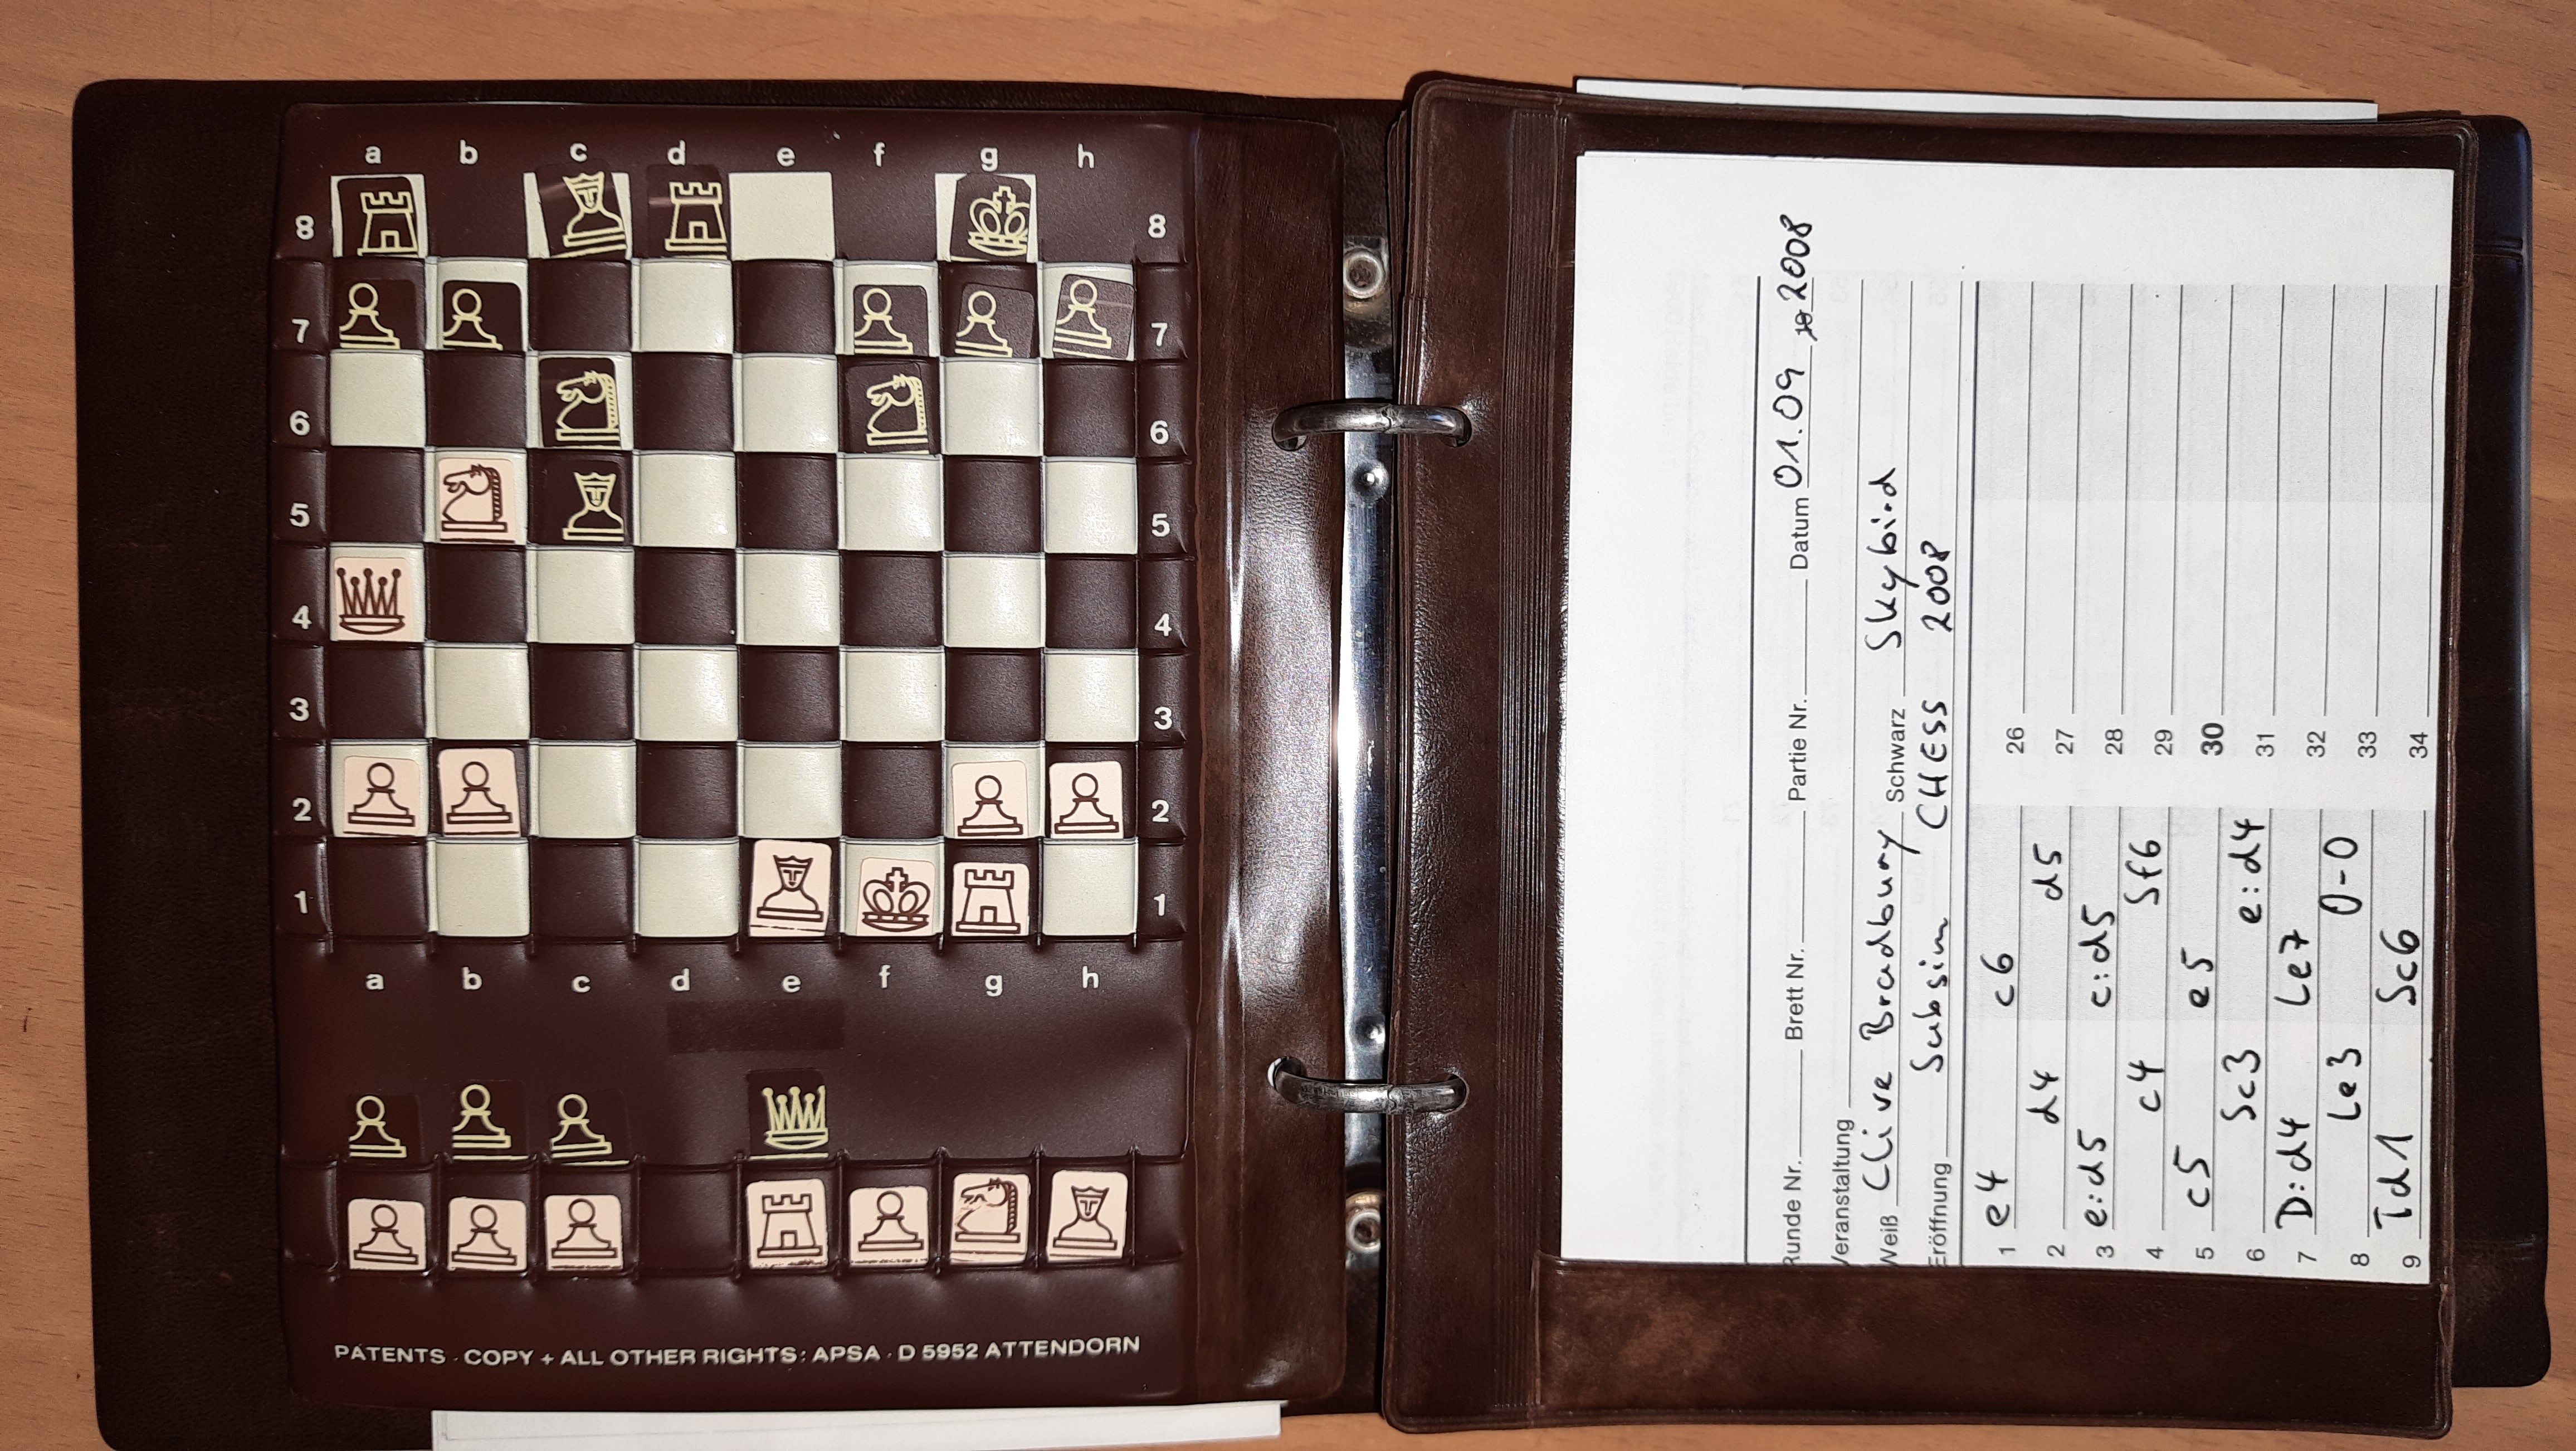 a b c d e f g h
8 8
7 7
6 6
5 5
4 4
3 3
2 2
1 1
a b c d e f g h
PATENTS · COPY + ALL OTHER RIGHTS: APSA · D 5952 ATTENDORN
Runde Nr. Brett Nr. Partie Nr. Datum 01.09 2008
Veranstaltung
Weiß Clive Bradbury Schwarz Skybird
Eröffnung Subsim CHESS 2008
1 e4 c6 26
2 d4 d5 27
3 e:d5 c:d5 28
4 c4 Sf6 29
5 c5 e5 30
6 Sc3 e:d4 31
7 D:d4 Le7 32
8 Le3 0-0 33
9 Td1 Sc6 34